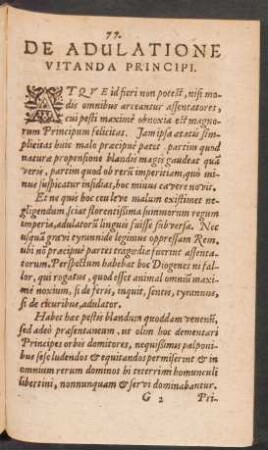 77.
DE ADULATIONE
VITANDA PRINCIPI.
ATQVE id fieri non potest, nisi mo-
dis omnibus arceantur assentatores,
cui pesti maximè obnoxia est magno-
rum Principum felicitas. Jam ipsa ætatis sim-
plicitas huic malo præcipuè patet partim quod
naturæ propensione blandis magis gaudeat quã
veris, partim quod ob rerũ imperitiam, quo mi-
nus suspicatur insidias, hoc minus cavere novit.
Et ne quis hoc ceu leve malum existimet ne-
gligendum, sciat florentissima summorum regum
imperia, adulatorũ linguis fuisse subversa. Nec
usquã gravi tyrannide legimus oppressam Rem-
ubi nõ præcipuè partes tragœdiæ fuerint assenta-
torum. Perspectum habebat hoc Diogenes ni fal-
lor, qui rogatus, quod esset animal omniũ maxi-
mè noxium, si de feris, inquit, sentis, tyrannus,
si de cicuribus, adulator.
Habet hæc pestis blandum quoddam venenũ,
sed adeò præsentaneum, ut olim hoc dementati
Principes orbis domitores, nequissimis palponi-
bus sese ludendos & equitandos permiserint & in
omnium rerum dominos hi teterrimi homunculi
libertini, nonnunquam & servi dominabantur.
G 2 Pri-